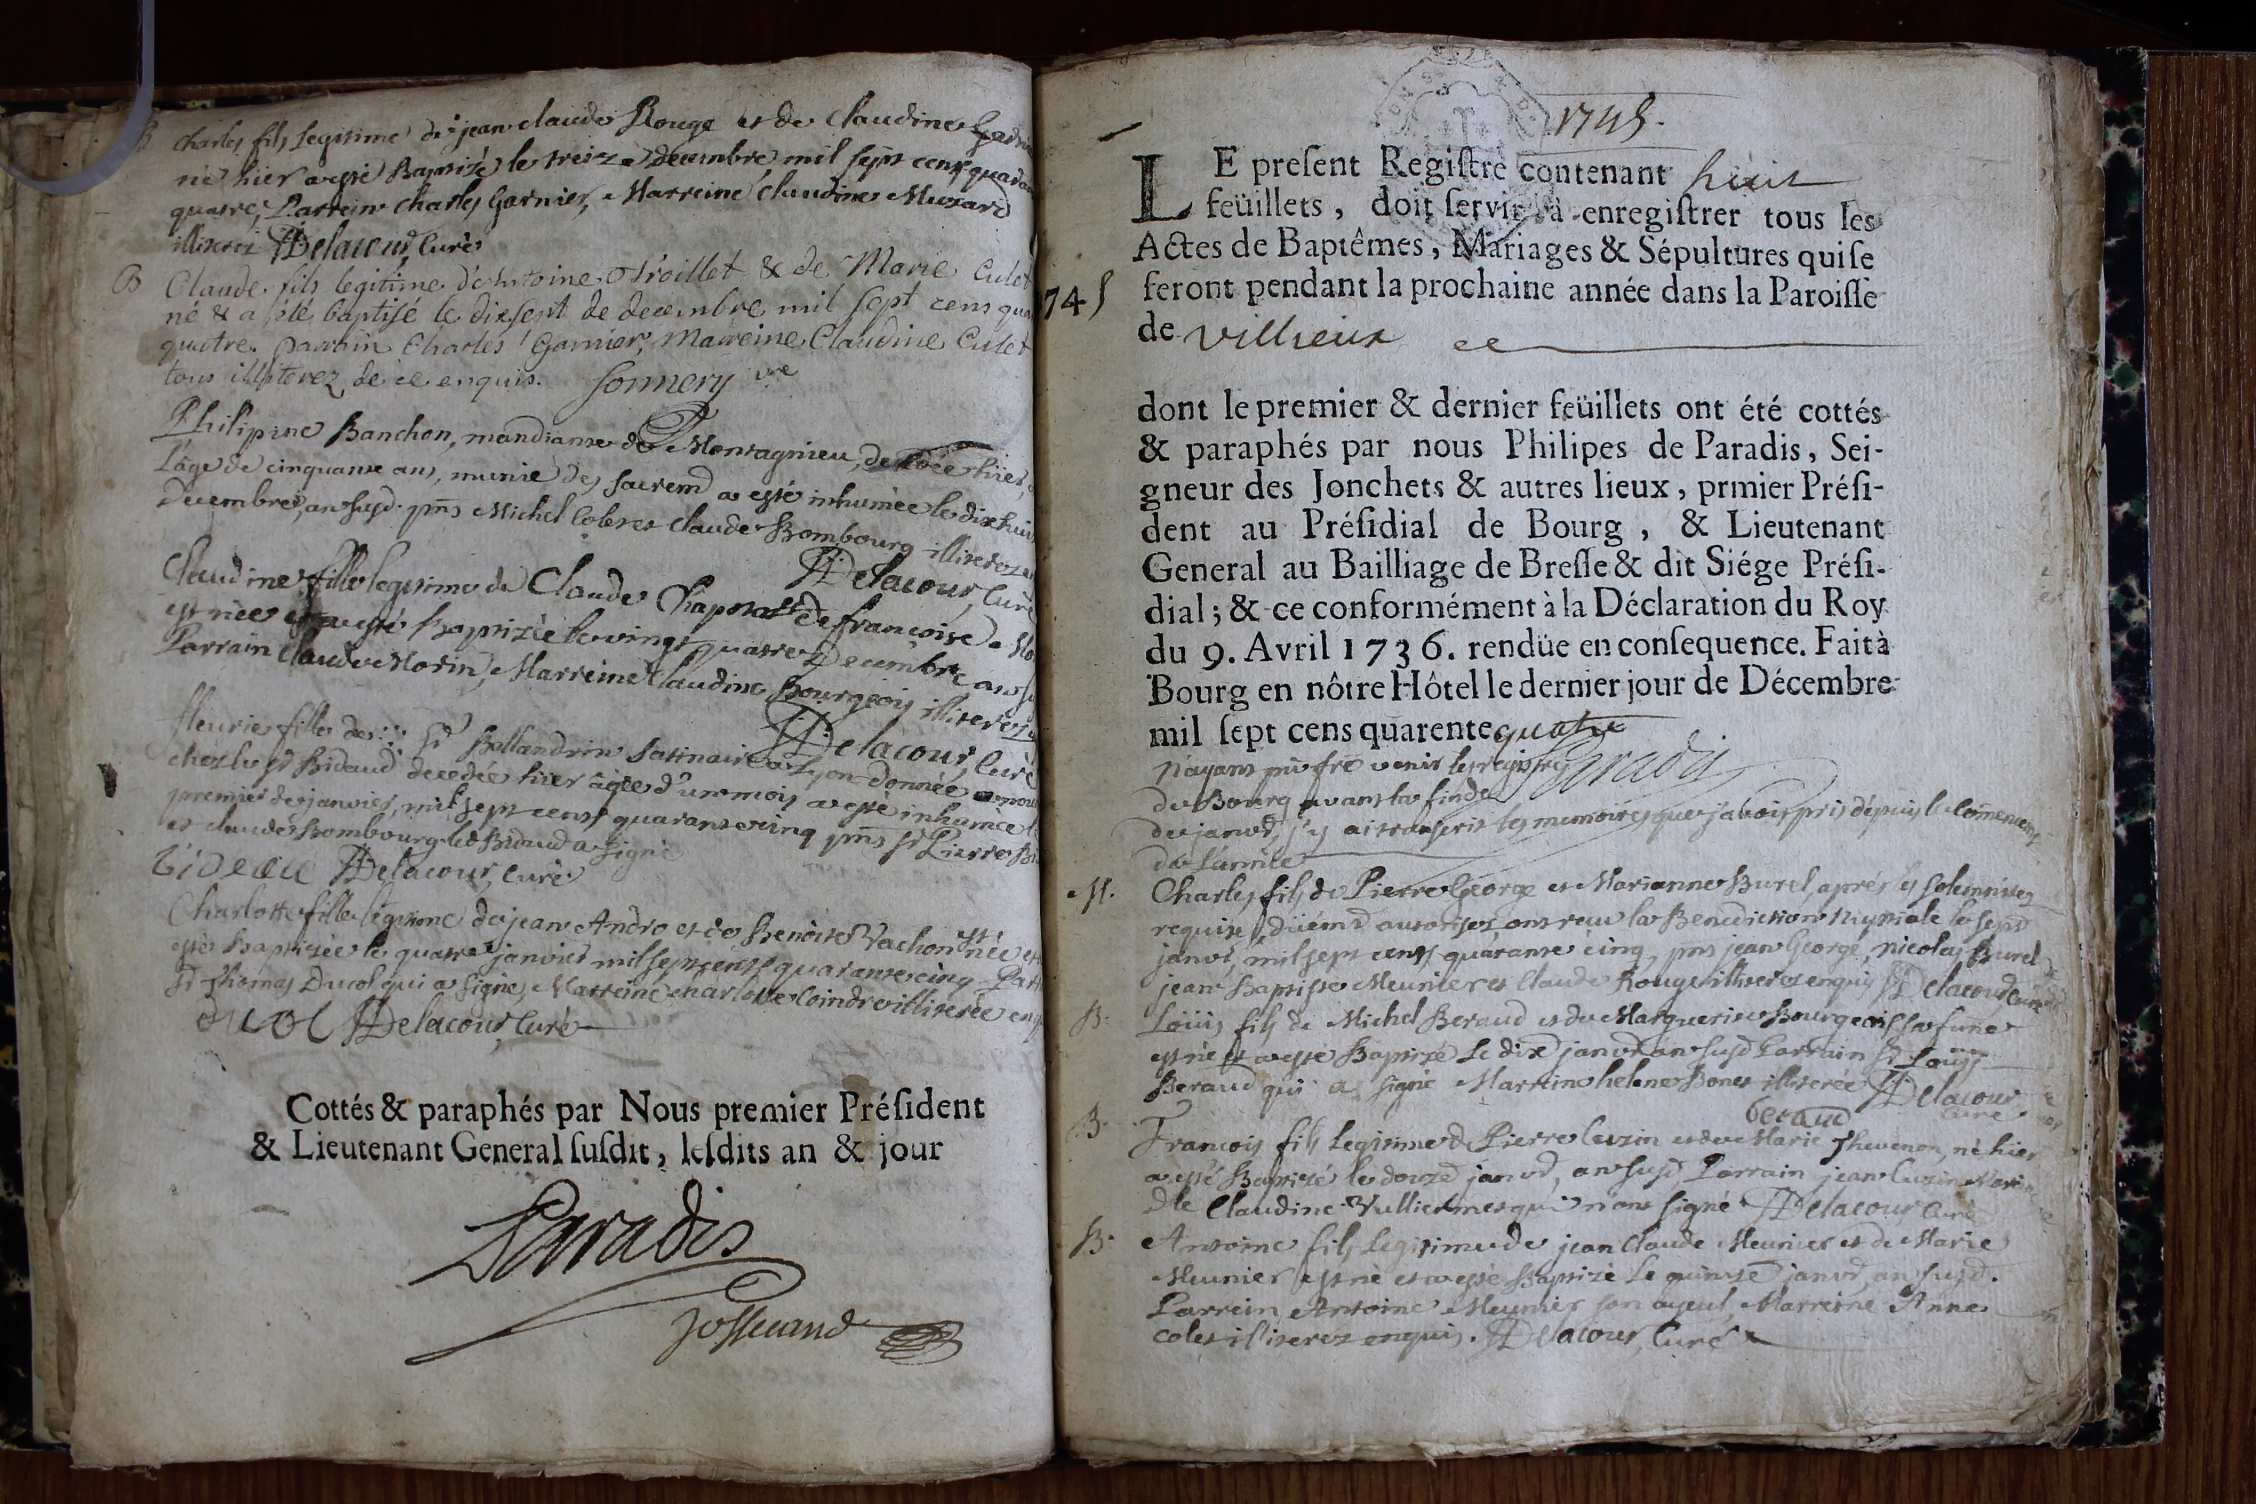 B
Charles fils legitime de jean claude Rouge et de Claudine
né hier a esté Baptizé le treize decembre mil sept cens quaran
quatre, Parrein Charles Garnier, Marreine Claudine Musard
illiterez Delacour, Curé
B Claude fils legitime d'Antoine Troillet & de Marie Culet
né & a été baptisé le dixsept de decembre mil sept cens qua
quatre. parrain Charles Garnier, Marreine Claudine Culet
tous illiterez de ce enquis. Sonnery vre
Philipine Banchon, mandiante de Montagnieu, decedée hier
l'âge de cinquante ans, munie des sacremd a esté inhumée le dix huit
Decembre, an susd. pns Michel Colet et Claude Bombourg illiterez
Delacour, Curé
Claudine fille legitime de Claude Chaponat et de francoise Mo
est née et a esté Baptizée le vingt quatre Decembre an su
Parrain Claude Morin, Marreine Claudine Bourgeois illiterez
Delacour, Curé
fleurie fille de ... Sr Bellandrin satinaire a Lyon donnée a nour
chez le Sr Bidaud decedée hier âgée d'un mois a esté inhumée le
premier de janvier, mil sept cens quarante cinq pns Sr Pierre Bi
et claude Bombourg led Bidaud a signé
Delacour, Curé
Charlotte fille legitime de jean Andro et de Benoite Vachon est née et
esté Baptizée le quatre janvier mil sept cens quarante cinq Parr
Sr Thomas Ducol qui a signé, Marreine charlotte Coindre illiterée enq
ducol Delacour, Curé
Cottés & paraphés par Nous premier Présidént
& Lieutenant General susdit, lesdits an & jour
Paradis
Josserand
1745.
LE present Registre contenant huit
feüillets, doit servir à enregistrer tous les
Actes de Baptêmes, Mariages & Sépultures qui se
1745 feront pendant la prochaine année dans la Paroisse
de Villieux
dont le premier & dernier feüillets ont été cottés
& paraphés par nous Philipes de Paradis, Sei-
gneur des Jonchets & autres lieux, prmier Prési-
dent au Présidial de Bourg, & Lieutenant
General au Bailliage de Bresse & dit Siége Prési-
dial; & ce conformément à la Déclaration du Roy
du 9. Avril 1736. rendüe en consequence. Fait à
Bourg en nôtre Hôtel le dernier jour de Décembre
mil sept cens quarente quatre
Paradis
N'ayant pû fre venir les registres
de Bourg avant la fin de
de janvd, j'y ai transcrit les memoires que j'avois pris depuis le comencemt
de l'année
M. Charles fils de Pierre George et Marianne Burel, aprés les solemnitez
requises düemd autorisez ont reçu la Benediction Nuptiale le sept
janvd, mil sept cens quarante cinq, pns jean George, Nicolas Burel
jean Baptiste Meunier et Claude Rouge illiterez enquis Delacour Curé
B. Loüis fils de Michel Beraud et de Marguerite Bourgeois sa fume
est né et a esté Baptizé le dix janvd an susd Parrain Sr Loüis
Beraud qui a signé Marreine helene Bonet illiterée Delacour
beraud Curé
B. Francois fils legitime de Pierre Cuzin et de Marie Thevenon, né hier
a esté Baptizé le douze janvd, an susd Parrain jean Cuzin Marreine
Dlle Claudine Vulliermet qui n'ont signé Delacour Curé
B. Antoine fils legitime de jean Claude Meunier et de Marie
Meunier est né et a esté Baptizé le quinze janvd, an susd.
Parrein Antoine Meunier son ayeul, Marreine Anne
colet illiterez enquis. Delacour, Curé